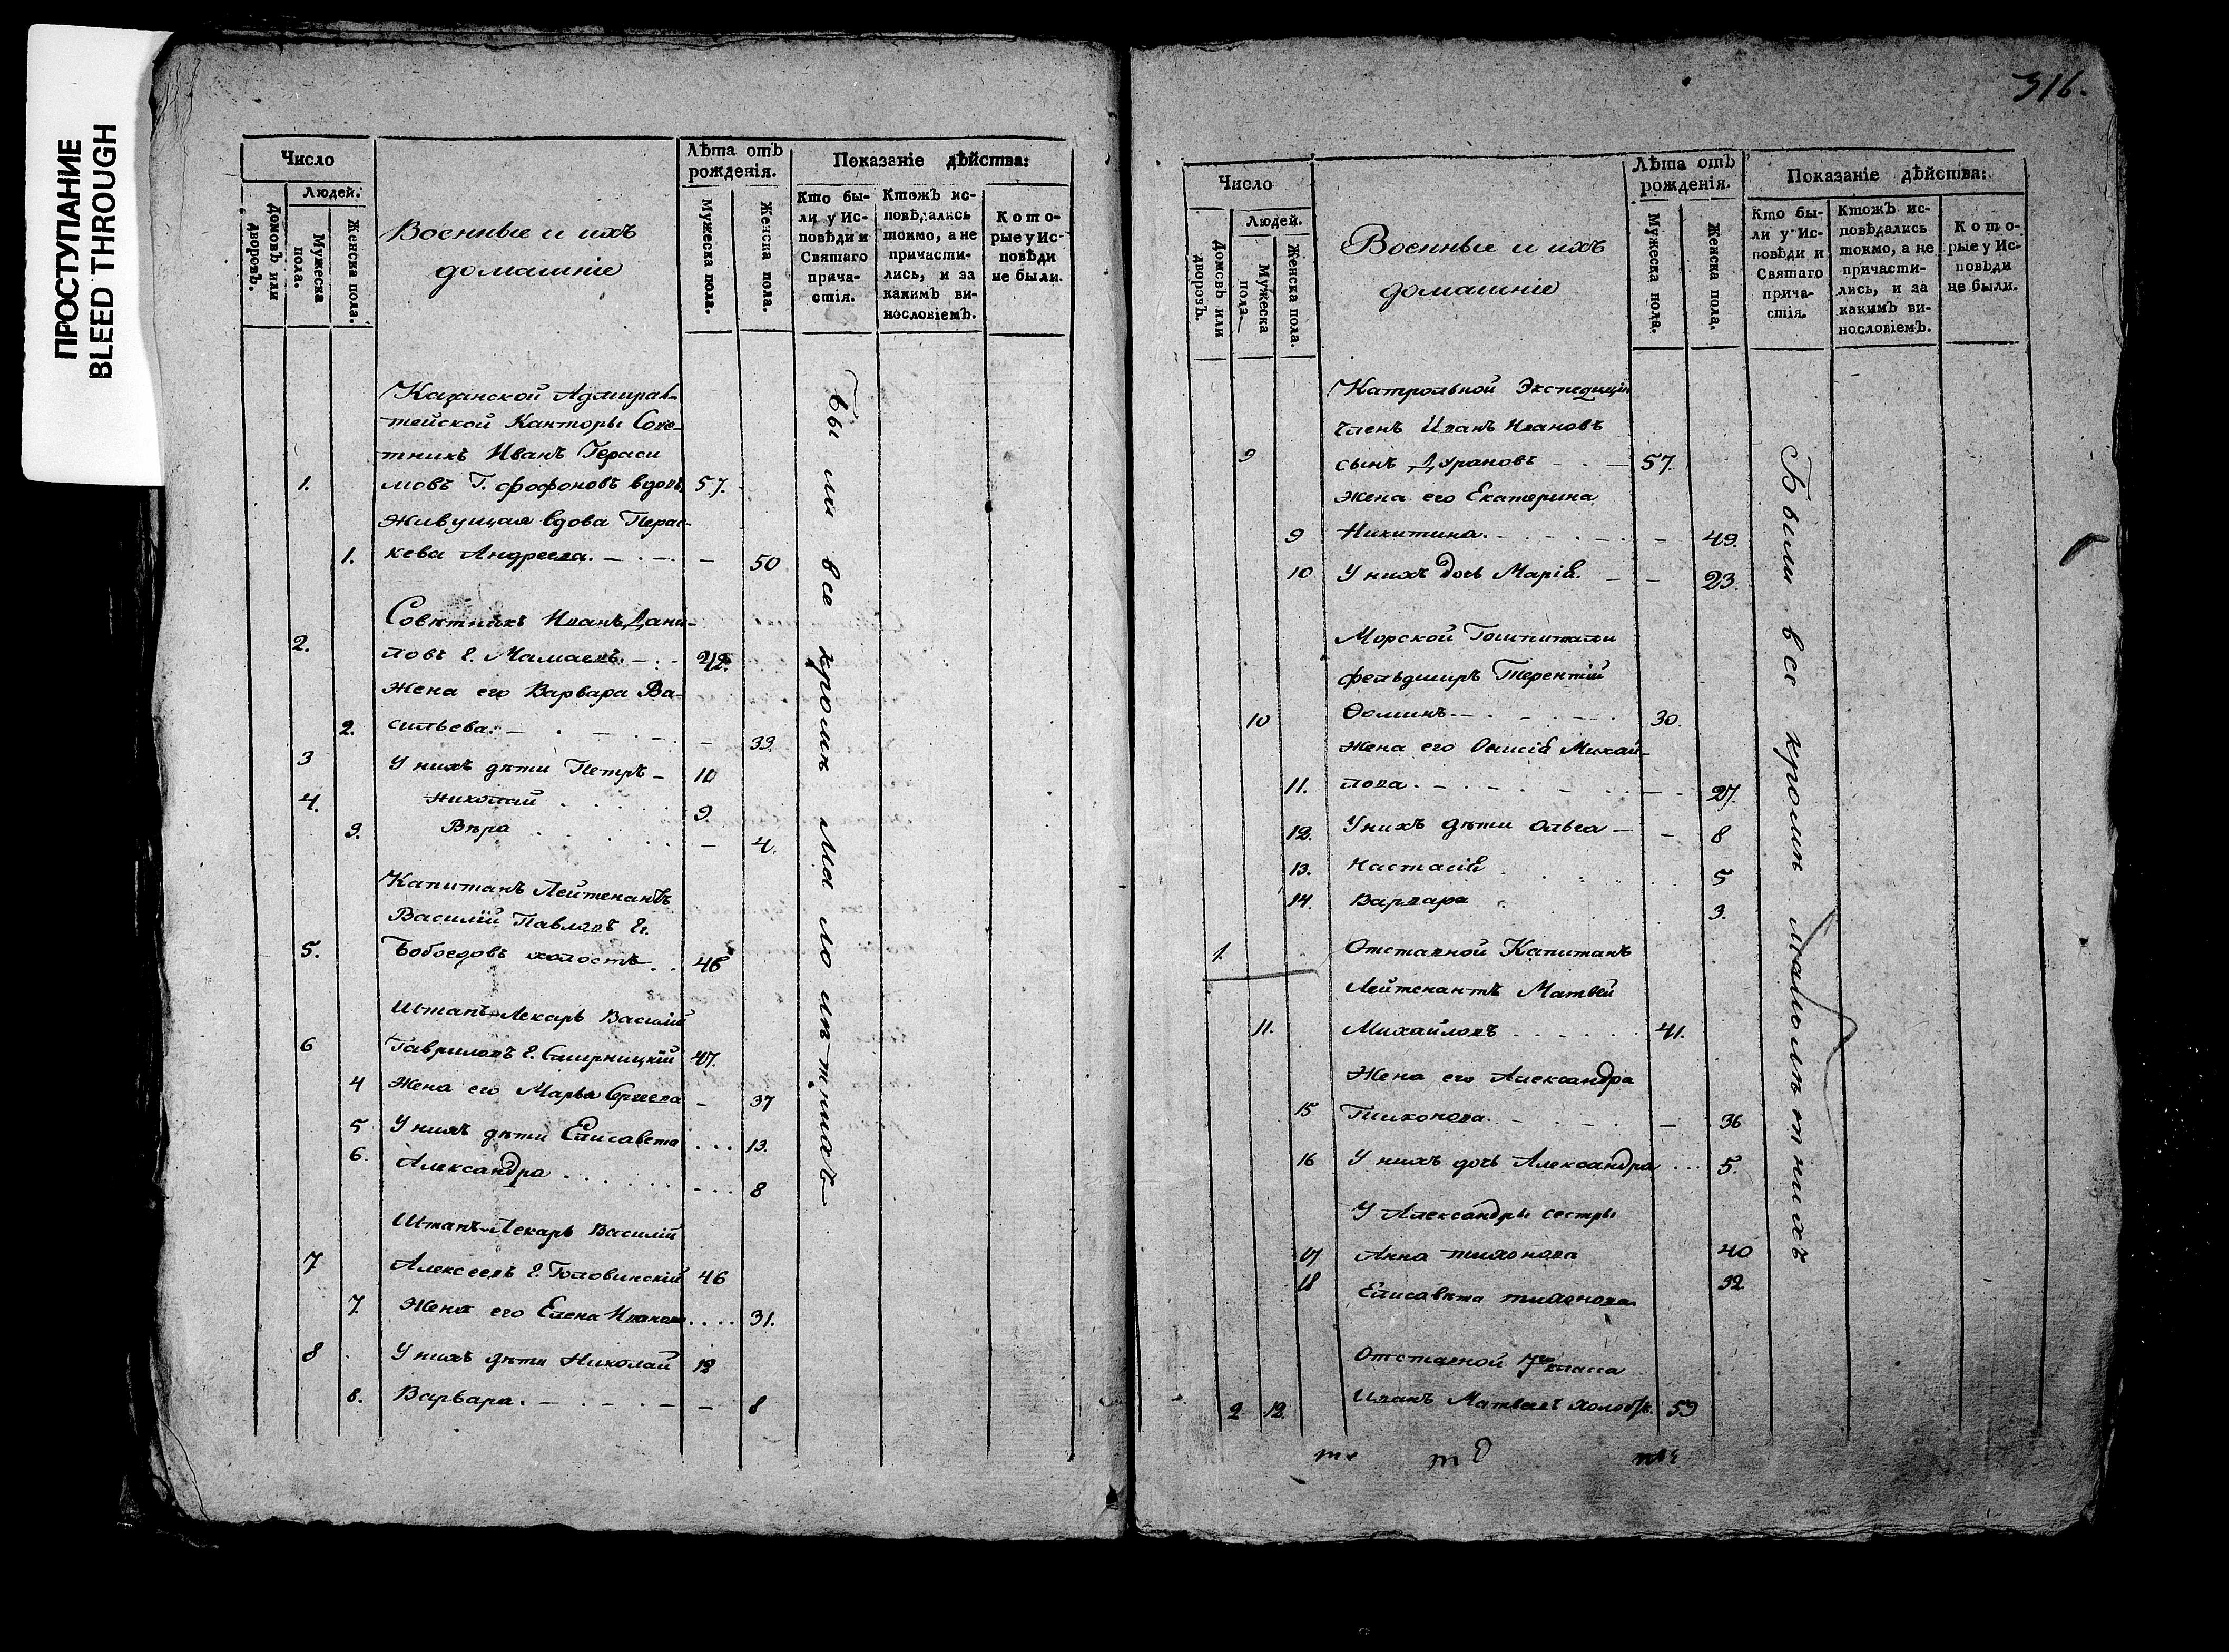 ПРОСТУПАНИЕ
BLEED THROUGH
Число
Людей.
Домовъ или дворовъ.
Мужеска пола.
Женска пола.
Военные и ихъ
домашніе
Лѣта отъ
рожденія.
Мужеска пола.
Женска пола.
Показаніе дѣйства:
Кто бы-
ли у Ис-
повѣди и
Святаго
прича-
стія.
Ктожъ ис-
повѣдались
токмо, а не
причасти-
лись, и за
какимъ ви-
нословіемъ.
Кото-
рые у Ис-
повѣди
не были.
Казанской Адмирал-
тейской Канторы Сове-
тникъ Иванъ Гераси
1. мовъ Г. Фофоновъ вдовъ 57.
Живущая вдова Парас-
1. кева Андреева. — 50
Совѣтникъ Иванъ Дани-
2. ловъ Г. Мамаевъ.
Жена его Варвара Ва-
2. сильева. — 33.
3 У нихъ дѣти Петръ — 10
4. Николай 9
3. Вѣра — 4.
Капитанъ Лейтенантъ
Василій Павловъ Г.
5. Бобоедовъ холостъ 46
Штапъ-Лекарь Василій
6 Гавриловъ Г. Смирницкій 47.
4 Жена его Марья Сргеева — 37
5 У нихъ дѣти Елисавета 13.
6. Александра 8
Штапъ-Лекарь Василій
7 Алексеевъ Г. Головинскій 46
7. Жена его Елена Иванова 31.
8 У нихъ дѣти Николай 12
8. Варвара. — 8
Были все кромѣ малолѣтнихъ
316.
Число
Людей.
Домовъ или дворовъ.
Мужеска пола.
Женска пола.
Военные и ихъ
домашніе
Лѣта отъ
рожденія.
Мужеска пола.
Женска пола.
Показаніе дѣйства:
Кто бы-
ли у Ис-
повѣди и
Святаго
прича-
стія.
Ктожъ ис-
повѣдались
токмо, а не
причасти-
лись, и за
какимъ ви-
нословіемъ.
Кото-
рые у Ис-
повѣди
не были.
Катрольной Экспедиціи
Членъ Иванъ Ивановъ
9 сынъ Дурановъ — 57.
Жена его Екатерина
9 Никитина. — 49.
10 У нихъ дочь Марія. — 23.
Морской Гошпитали
фельдширъ Терентій
10 Ѳоминъ — 30.
Жена его Анисія Михай-
11. лова. — 27.
12. У нихъ дѣти Ольга — 8
13. Настасія 5
14. Варвара 3.
1. Отставной Капитанъ
Лейтенантъ Матвей
11. Михайловъ 41.
Жена его Александра
15 Тихонова. — 36
16 У нихъ дочь Александра 5.
У Александры сестры
17 Анна Тихонова 40
18 Елисавета Тихонова 32
Отставной 7го класса
2 12. Иванъ Матвеевъ 53
Были все кромѣ малолѣтнихъ